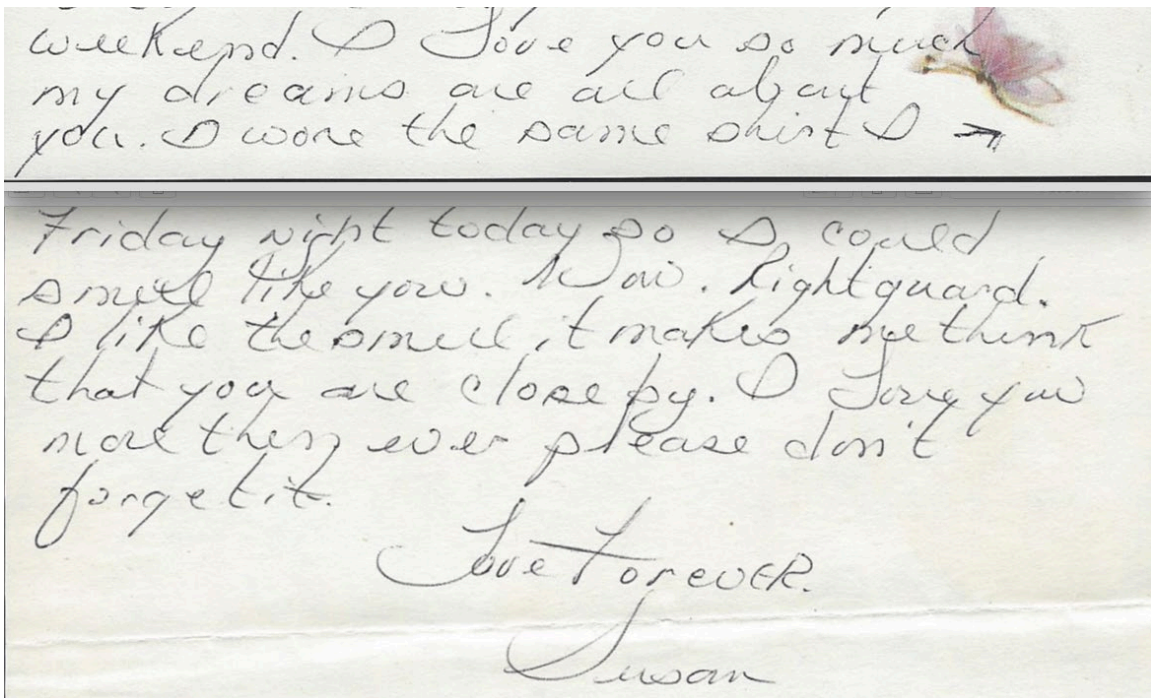 weekend. I Love you so much
my dreams are all about
you. I wore the same shirt I →
Friday night today so I could
smell like you. Now. Rightguard.
I like the smell, it makes me think
that you are close by. I Love you
more then ever please don't
forget it.
Love Forever.
Susan